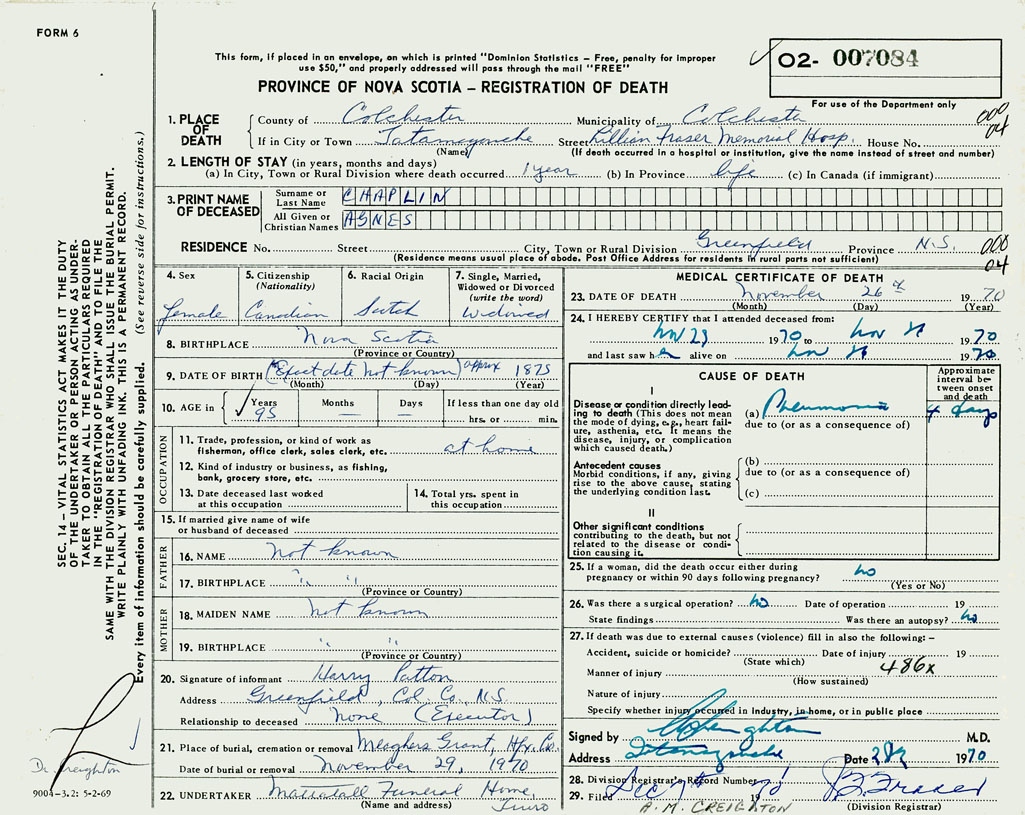 FORM 6
This form, if placed in an envelope, on which is printed "Dominion Statistics – Free, penalty for improper
use $50," and properly addressed will pass through the mail "FREE"
02- 007084
PROVINCE OF NOVA SCOTIA – REGISTRATION OF DEATH
For use of the Department only
1. PLACE OF DEATH
County of Colchester Municipality of Colchester 000
If in City or Town Tatamagouche Street Lillian Fraser Memorial Hosp. House No. 04
(Name) (If death occurred in a hospital or institution, give the name instead of street and number)
2. LENGTH OF STAY (in years, months and days)
(a) In City, Town or Rural Division where death occurred 1 year (b) In Province life (c) In Canada (if immigrant)
3. PRINT NAME OF DECEASED
Surname or Last Name CHAPLIN
All Given or Christian Names AGNES
RESIDENCE No. Street City, Town or Rural Division Greenfield Province N.S. 000
(Residence means usual place of abode. Post Office Address for residents in rural parts not sufficient) 04
4. Sex
female
5. Citizenship
(Nationality)
Canadian
6. Racial Origin
Scotch
7. Single, Married,
Widowed or Divorced
(write the word)
Widowed
8. BIRTHPLACE Nova Scotia
(Province or Country)
9. DATE OF BIRTH (Exact date not known) approx 1875
(Month) (Day) (Year)
10. AGE in Years Months Days If less than one day old
95 — — hrs. or min.
OCCUPATION
11. Trade, profession, or kind of work as
fisherman, office clerk, sales clerk, etc. at home
12. Kind of industry or business, as fishing,
bank, grocery store, etc.
13. Date deceased last worked
at this occupation
14. Total yrs. spent in
this occupation
15. If married give name of wife
or husband of deceased
FATHER
16. NAME Not known
17. BIRTHPLACE " "
(Province or Country)
MOTHER
18. MAIDEN NAME Not known
19. BIRTHPLACE " "
(Province or Country)
20. Signature of informant Harry Patton
Address Greenfield, Col. Co. N.S.
Relationship to deceased None (Executor)
21. Place of burial, cremation or removal Meaghers Grant, Hfx. Co.
Date of burial or removal November 29, 1970
22. UNDERTAKER Mattatall Funeral Home,
(Name and address) Truro
MEDICAL CERTIFICATE OF DEATH
23. DATE OF DEATH November 26th 1970
(Month) (Day) (Year)
24. I HEREBY CERTIFY that I attended deceased from:
Nov 23 1970 to Nov 1970
and last saw her alive on Nov 1970
CAUSE OF DEATH
Approximate
interval be-
tween onset
and death
I
Disease or condition directly lead-
ing to death (This does not mean
the mode of dying, e.g., heart fail-
ure, asthenia, etc. It means the
disease, injury, or complication
which caused death.)
(a) Pneumonia 4 days
due to (or as a consequence of)
Antecedent causes
Morbid conditions, if any, giving
rise to the above cause, stating
the underlying condition last.
(b)
due to (or as a consequence of)
(c)
II
Other significant conditions
contributing to the death, but not
related to the disease or condi-
tion causing it.
25. If a woman, did the death occur either during
pregnancy or within 90 days following pregnancy? No
(Yes or No)
26. Was there a surgical operation? No Date of operation 19
State findings Was there an autopsy? No
27. If death was due to external causes (violence) fill in also the following: –
Accident, suicide or homicide? Date of injury 19
(State which)
Manner of injury 486x
(How sustained)
Nature of injury
Specify whether injury occurred in industry, in home, or in public place
Signed by Creighton M.D.
Address Tatamagouche Date 28 1970
28. Division Registrar's Record Number
29. Filed Dec 7th 1970 Fraser
A. M. CREIGHTON (Division Registrar)
SEC. 14 – VITAL STATISTICS ACT MAKES IT THE DUTY
OF THE UNDERTAKER OR PERSON ACTING AS UNDER-
TAKER TO OBTAIN ALL THE PARTICULARS REQUIRED
IN THE "REGISTRATION OF DEATH" AND FILE THE
SAME WITH THE DIVISION REGISTRAR WHO SHALL ISSUE THE BURIAL PERMIT.
WRITE PLAINLY WITH UNFADING INK. THIS IS A PERMANENT RECORD.
Every item of information should be carefully supplied. (See reverse side for instructions.)
Dr. Creighton
9004–3.2: 5-2-69